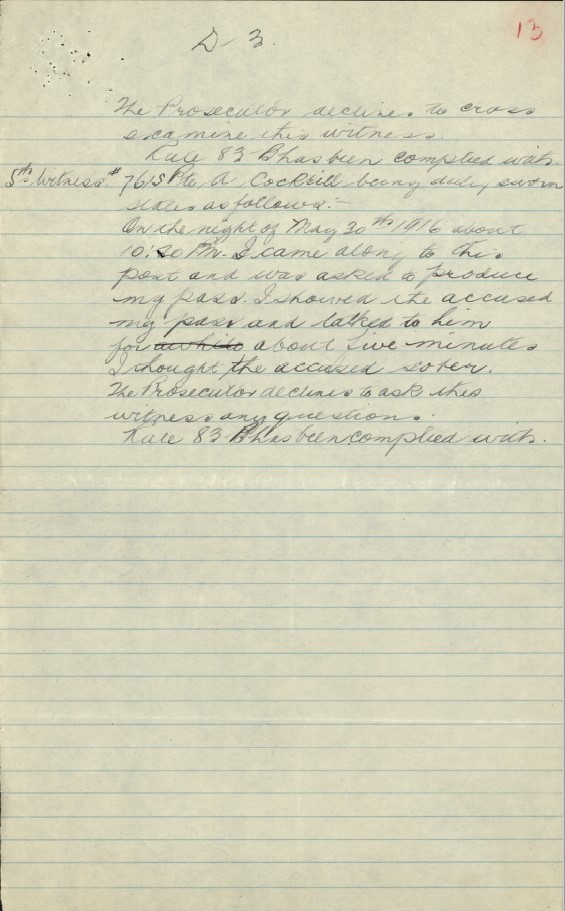 13
D-3.
The Prosecutor declines to cross
examine this witness.
Rule 83 B has been complied with.
5th Witness. # 7615 Pte A Cockrill being duly sworn
states as follows:-
On the night of May 30th 1916 about
10:20 P.M. I came along to this
post and was asked to produce
my pass. I showed the accused
my pass and talked to him
for awhile about five minutes
I thought the accused sober.
The Prosecutor declines to ask this
witness any questions.
Rule 83 B has been complied with.